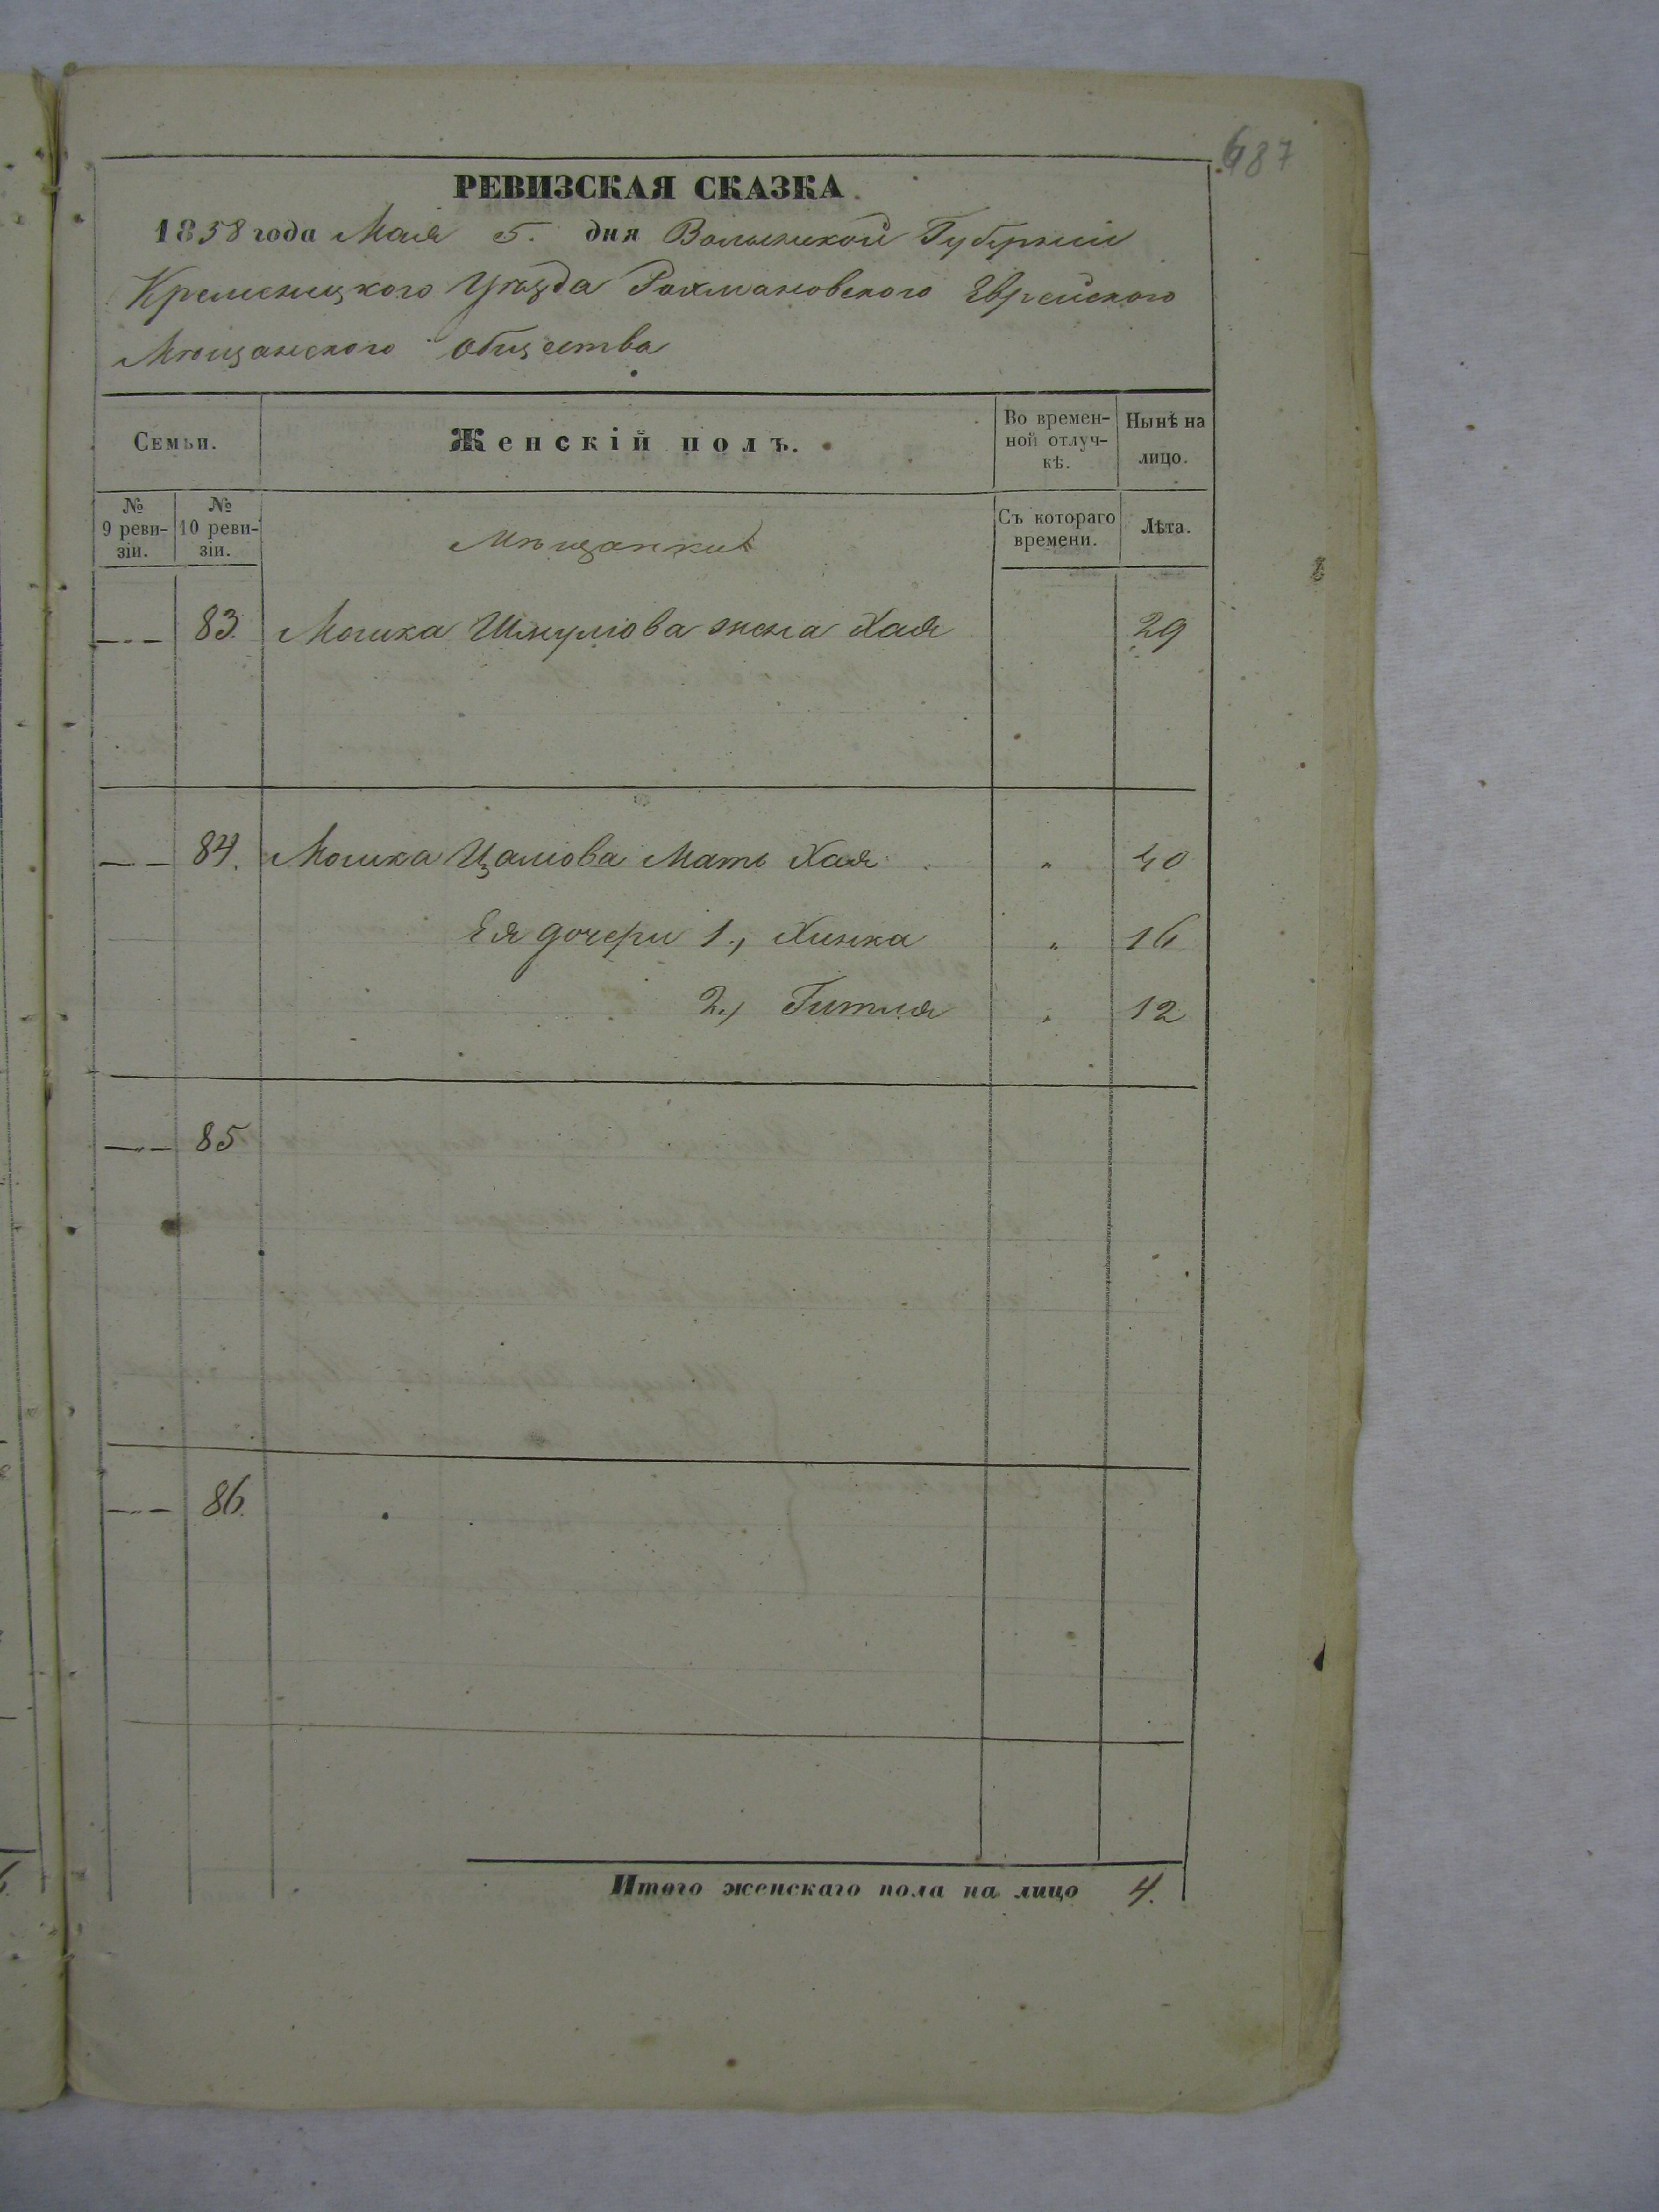 687
РЕВИЗСКАЯ СКАЗКА
1858 года Мая 5. дня Волынской Губерніи
Кременецкого Уѣзда Рахмановского Еврейского
Мѣщанского общества
Семьи. Женскій полъ. Во времен-ной отлуч-кѣ. Нынѣ на лицо.
№ 9 реви-зіи. № 10 реви-зіи. Мѣщанки Съ котораго времени. Лѣта.
—„— 83. Мошка Шмулiова жена Хая 29
—„— 84. Мошка Цалiова Мать Хая „ 40
Ея дочери 1., Хинка „ 16
2., Гитля „ 12
—„— 85
—„— 86.
Итого женскаго пола на лицо 4.